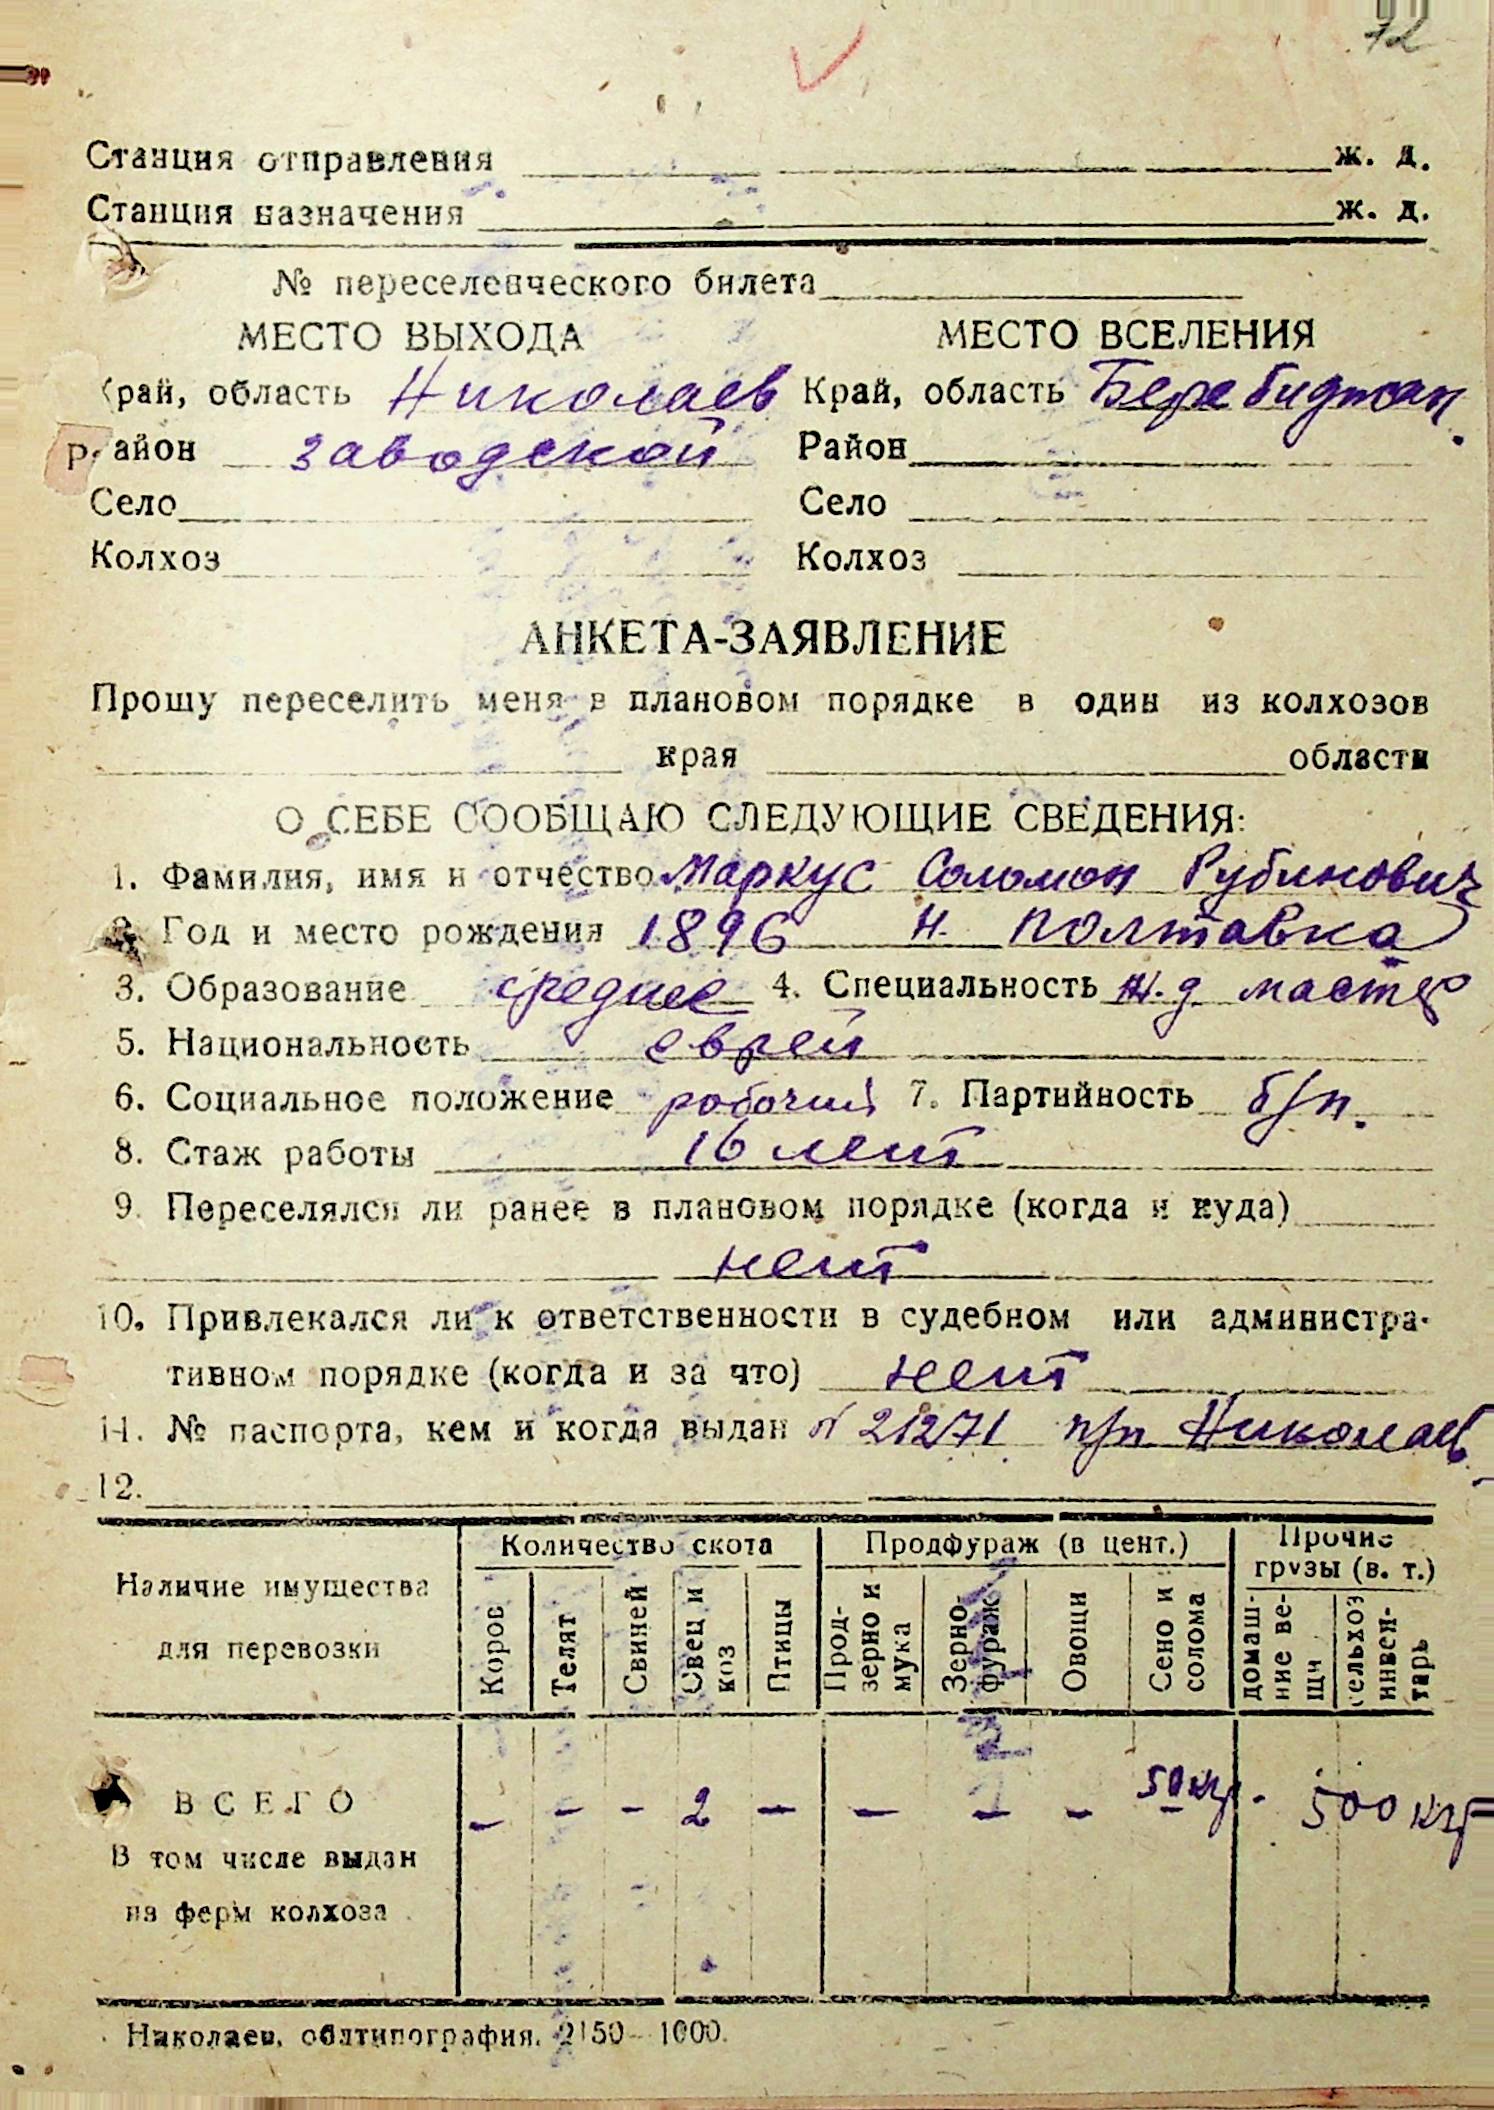 72
Станция отправления ж. д.
Станция назначения ж. д.
№ переселенческого билета
МЕСТО ВЫХОДА МЕСТО ВСЕЛЕНИЯ
Край, область Николаев Край, область Беребиджан.
Район заводской Район
Село Село
Колхоз Колхоз
АНКЕТА-ЗАЯВЛЕНИЕ
Прошу переселить меня в плановом порядке в один из колхозов
края области
О СЕБЕ СООБЩАЮ СЛЕДУЮЩИЕ СВЕДЕНИЯ:
1. Фамилия, имя и отчество Маркус Соломон Рубинович
2. Год и место рождения 1896 Н. Полтавка
3. Образование среднее 4. Специальность ж.д. мастер
5. Национальность еврей
6. Социальное положение рабочий 7. Партийность б/п.
8. Стаж работы 16 лет
9. Переселялся ли ранее в плановом порядке (когда и куда)
нет
10. Привлекался ли к ответственности в судебном или администра-
тивном порядке (когда и за что) нет
11. № паспорта, кем и когда выдан № 21271 Николаев
12.
Наличие имущества для перевозки Количество скота Продфураж (в цент.) Прочие грузы (в. т.)
Коров Телят Свиней Овец и коз Птицы Прод-зерно и мука Зерно-фураж Овощи Сено и солома домаш-ние ве-щи сельхоз инвен-тарь
ВСЕГО – – – 2 – – – – 50 кгр. 500 кгр
В том числе выдан
из ферм колхоза
Николаев, облтипография. 2150—1000.